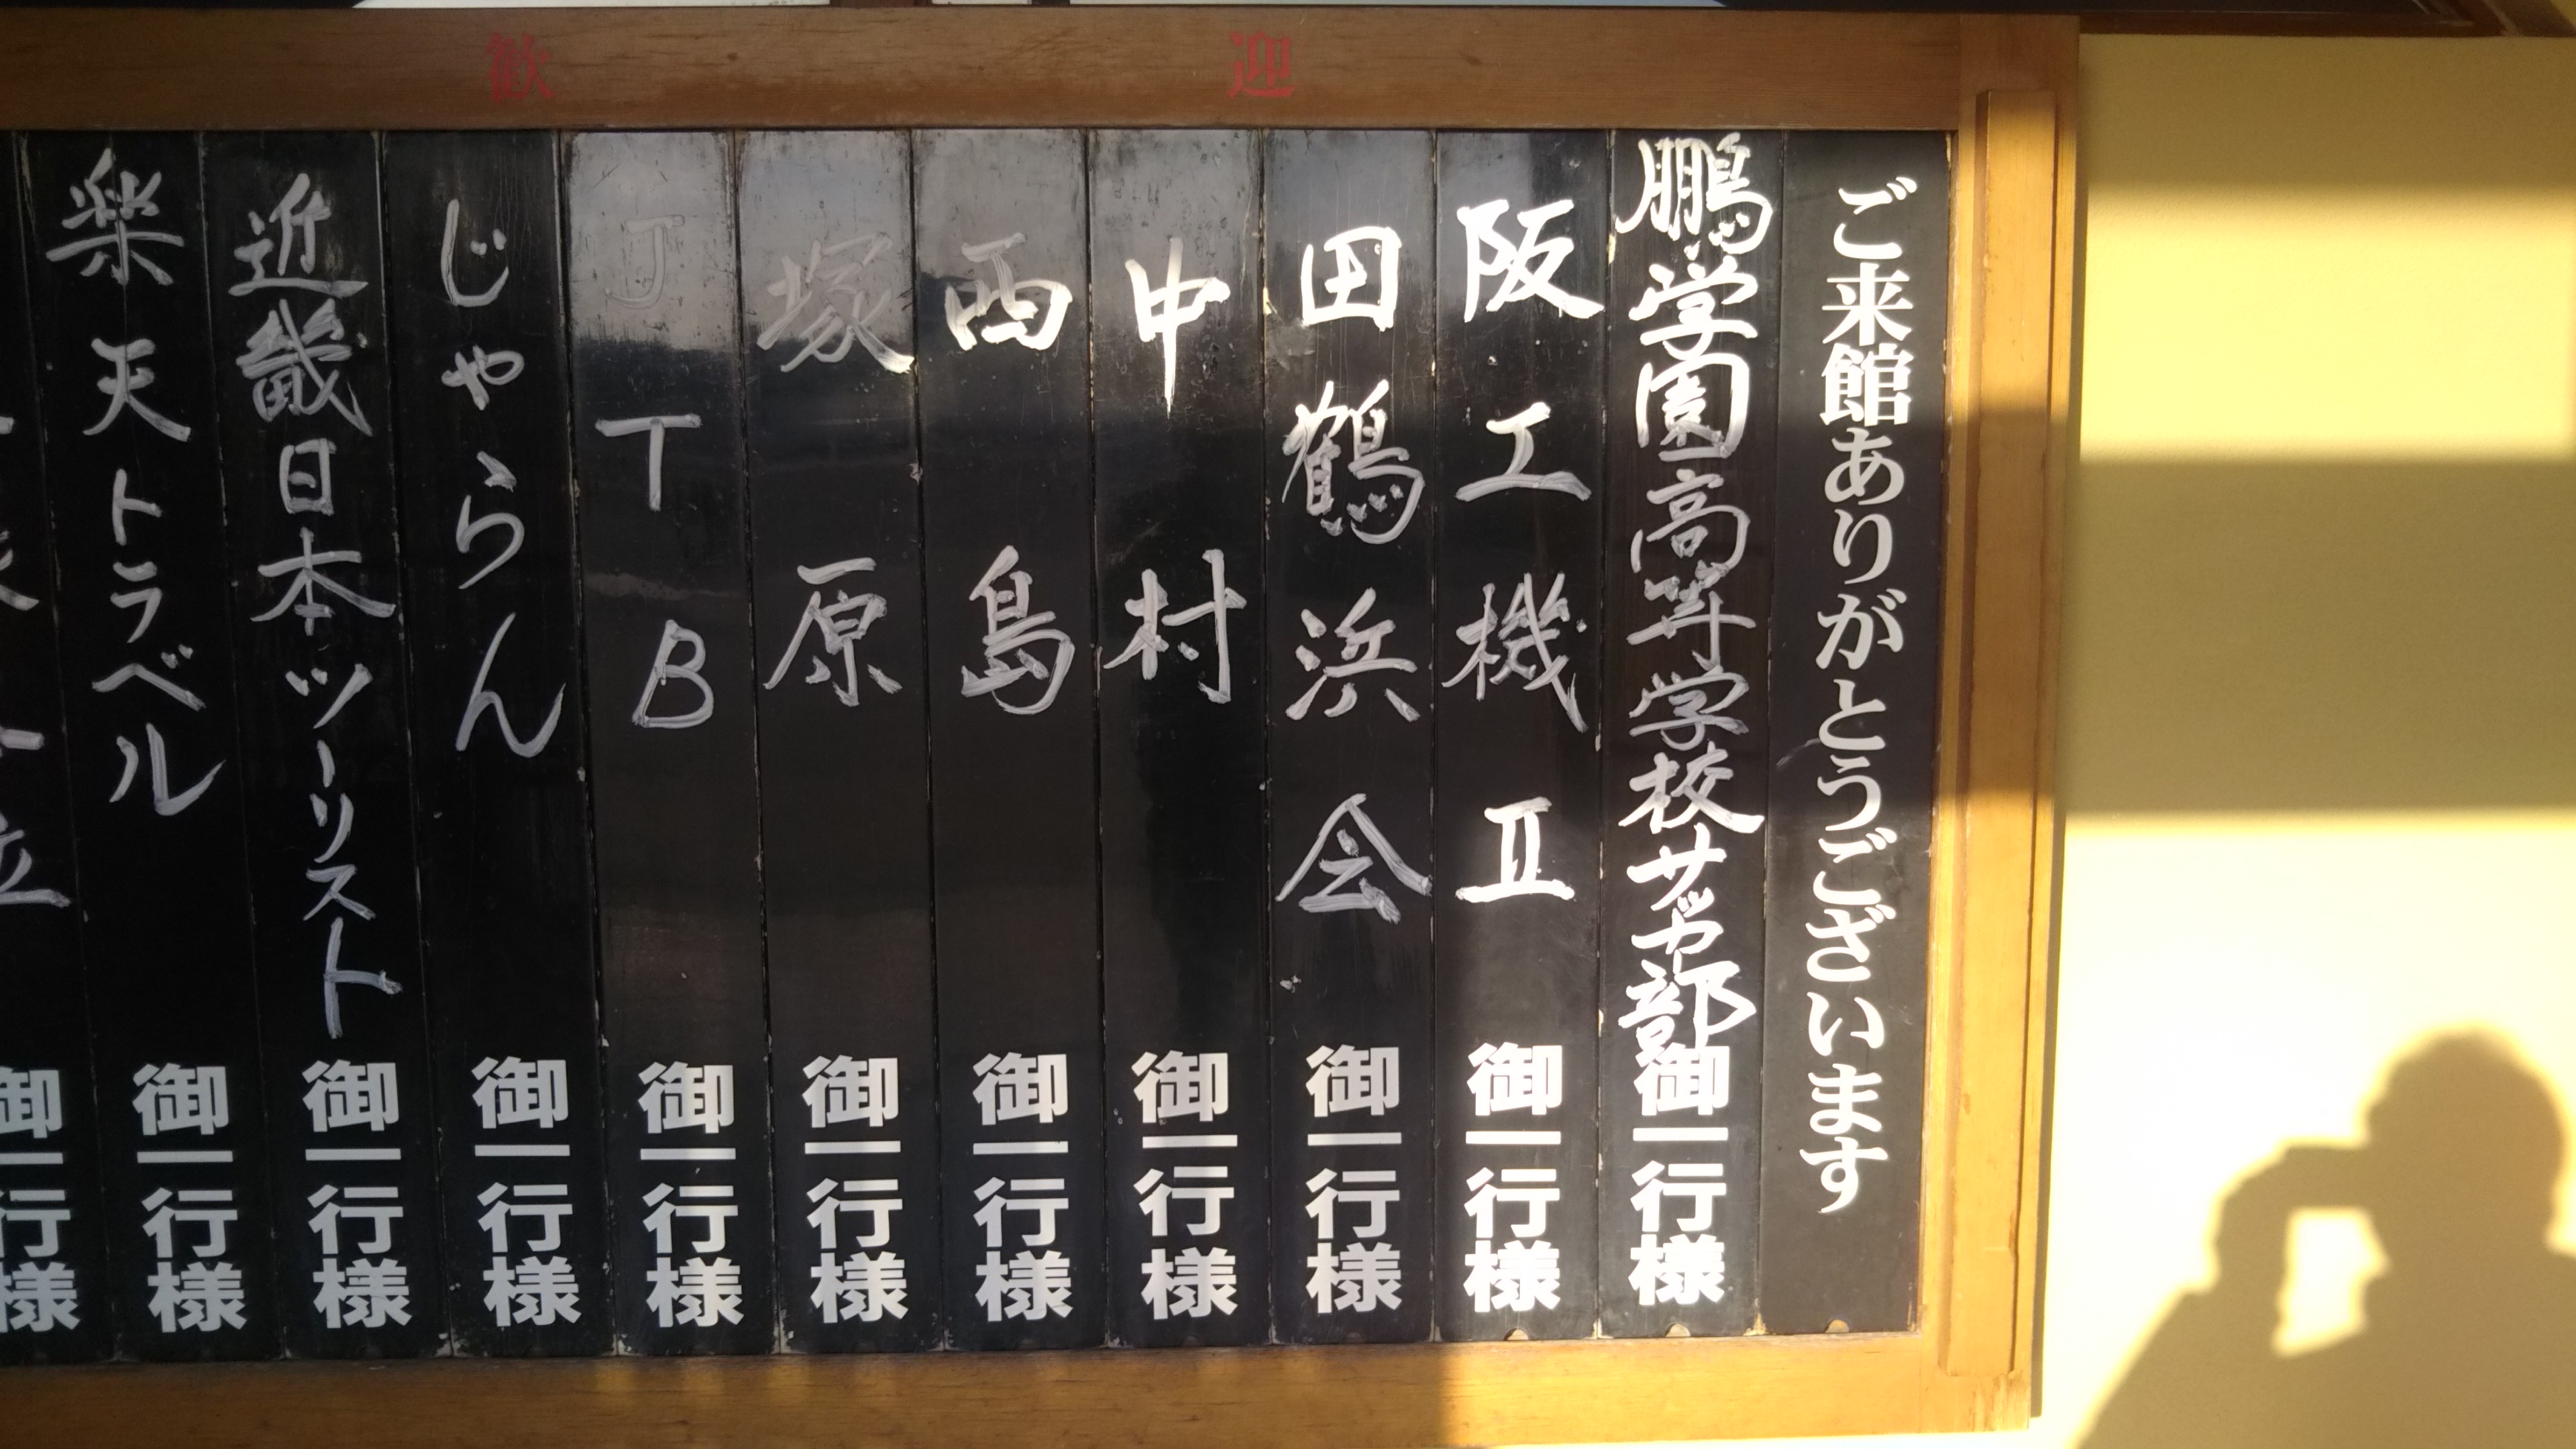 歓迎
ご来館ありがとうございます
鵬学園高等学校サッカー部御一行様
阪工機Ⅱ御一行様
田鶴浜会御一行様
中村御一行様
西島御一行様
塚原御一行様
JTB御一行様
じゃらん御一行様
近畿日本ツーリスト御一行様
楽天トラベル御一行様
御一行様